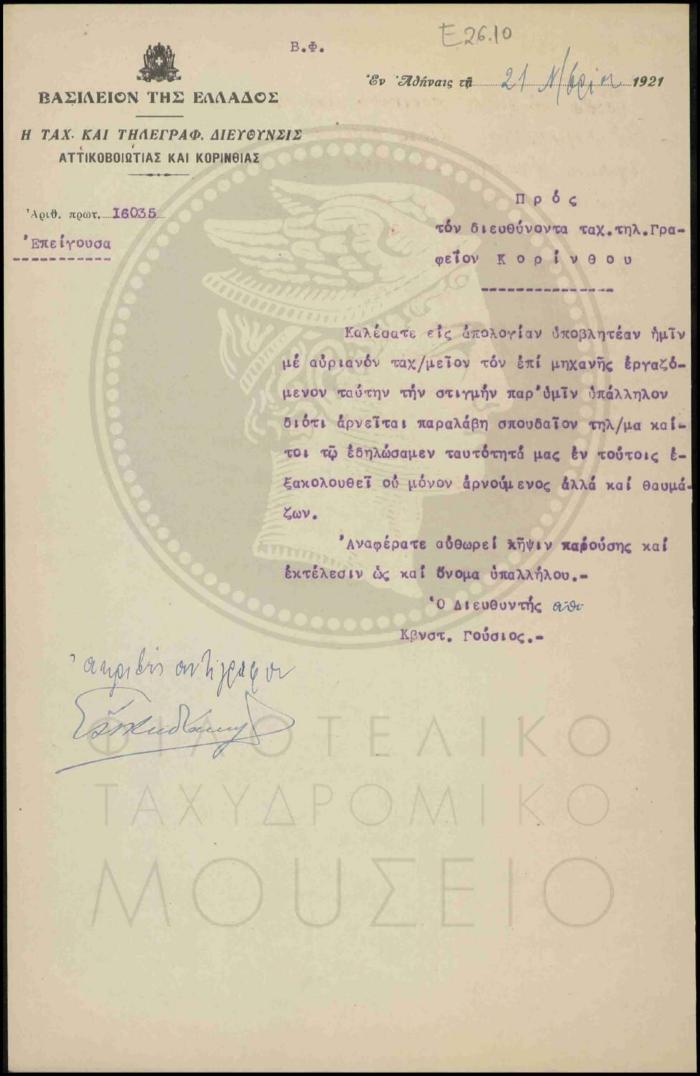 Ε26.10
Β.Φ.
Ἐν Ἀθήναις τῇ 21 Ν/βρίου 1921
ΒΑΣΙΛΕΙΟΝ ΤΗΣ ΕΛΛΑΔΟΣ
Η ΤΑΧ. ΚΑΙ ΤΗΛΕΓΡΑΦ. ΔΙΕΥΘΥΝΣΙΣ
ΑΤΤΙΚΟΒΟΙΩΤΙΑΣ ΚΑΙ ΚΟΡΙΝΘΙΑΣ
Ἀριθ. πρωτ. 16035
Ἐπείγουσα
Πρός
τόν διευθύνοντα ταχ.τηλ.Γρα-
φεῖον Κορίνθου
Καλέσατε εἰς ἀπολογίαν ὑποβλητέαν ἡμῖν
μέ αὐριανόν ταχ/μεῖον τόν ἐπί μηχανῆς ἐργαζό-
μενον ταύτην τήν στιγμήν παρ'ὑμῖν ὑπάλληλον
διότι ἀρνεῖται παραλάβῃ σπουδαῖον τηλ/μα καί-
τοι τῷ ἐδηλώσαμεν ταυτότητά μας ἐν τούτοις ἐ-
ξακολουθεῖ οὐ μόνον ἀρνούμενος ἀλλά καί θαυμά-
ζων.
Ἀναφέρατε αὐθωρεί λῆψιν παρούσης καί
ἐκτέλεσιν ὡς καί ὄνομα ὑπαλλήλου.-
Ὁ Διευθυντής
Κβνστ. Γούσιος.-
ἀκριβές ἀντίγραφον
ΦΙΛΟΤΕΛΙΚΟ
ΤΑΧΥΔΡΟΜΙΚΟ
ΜΟΥΣΕΙΟ